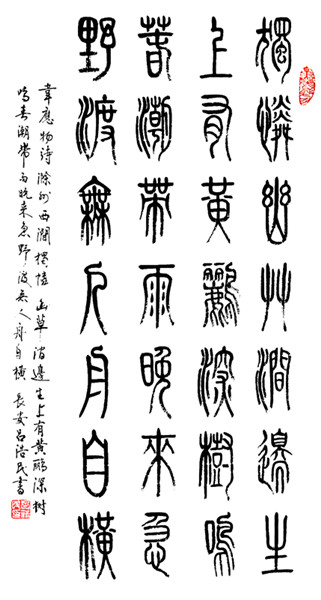 獨憐幽艸澗邊生
上有黃鸝深樹鳴
春潮帶雨晚來急
野渡無人舟自橫
韋應物詩滁州西澗獨憐幽草澗邊生上有黃鸝深樹
鳴春潮帶雨晚來急野渡无人舟自橫長安呂浩民書